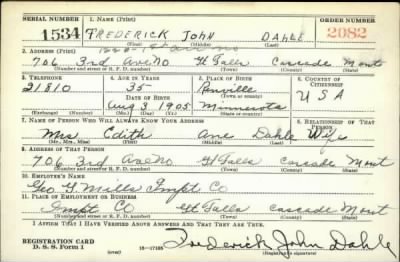 SERIAL NUMBER 1. NAME (Print) ORDER NUMBER
1534 FREDERICK JOHN DAHLE 2082
(First) (Middle) (Last)
2. ADDRESS (Print)
706 3rd Ave No Gt Falls Cascade Mont
(Number and street or R. F. D. number) (Town) (County) (State)
3. TELEPHONE 4. AGE IN YEARS 5. PLACE OF BIRTH 6. COUNTRY OF CITIZENSHIP
21810 35 Renville U S A
DATE OF BIRTH (Town or county)
Aug 3 1905 Minnesota
(Mo.) (Day) (Yr.) (State or country)
7. NAME OF PERSON WHO WILL ALWAYS KNOW YOUR ADDRESS 8. RELATIONSHIP OF THAT PERSON
Mrs Edith Ane Dahle Wife
(Mr., Mrs., Miss) (First) (Middle) (Last)
9. ADDRESS OF THAT PERSON
706 3rd Ave No Gt Falls Cascade Mont
(Number and street or R. F. D. number) (Town) (County) (State)
10. EMPLOYER'S NAME
Geo T. Mills Impt Co
11. PLACE OF EMPLOYMENT OR BUSINESS
Impt Co Gt Falls Cascade Mont
(Number and street or R. F. D. number) (Town) (County) (State)
I AFFIRM THAT I HAVE VERIFIED ABOVE ANSWERS AND THAT THEY ARE TRUE.
REGISTRATION CARD
D. S. S. FORM 1 16—17105 Frederick John Dahle